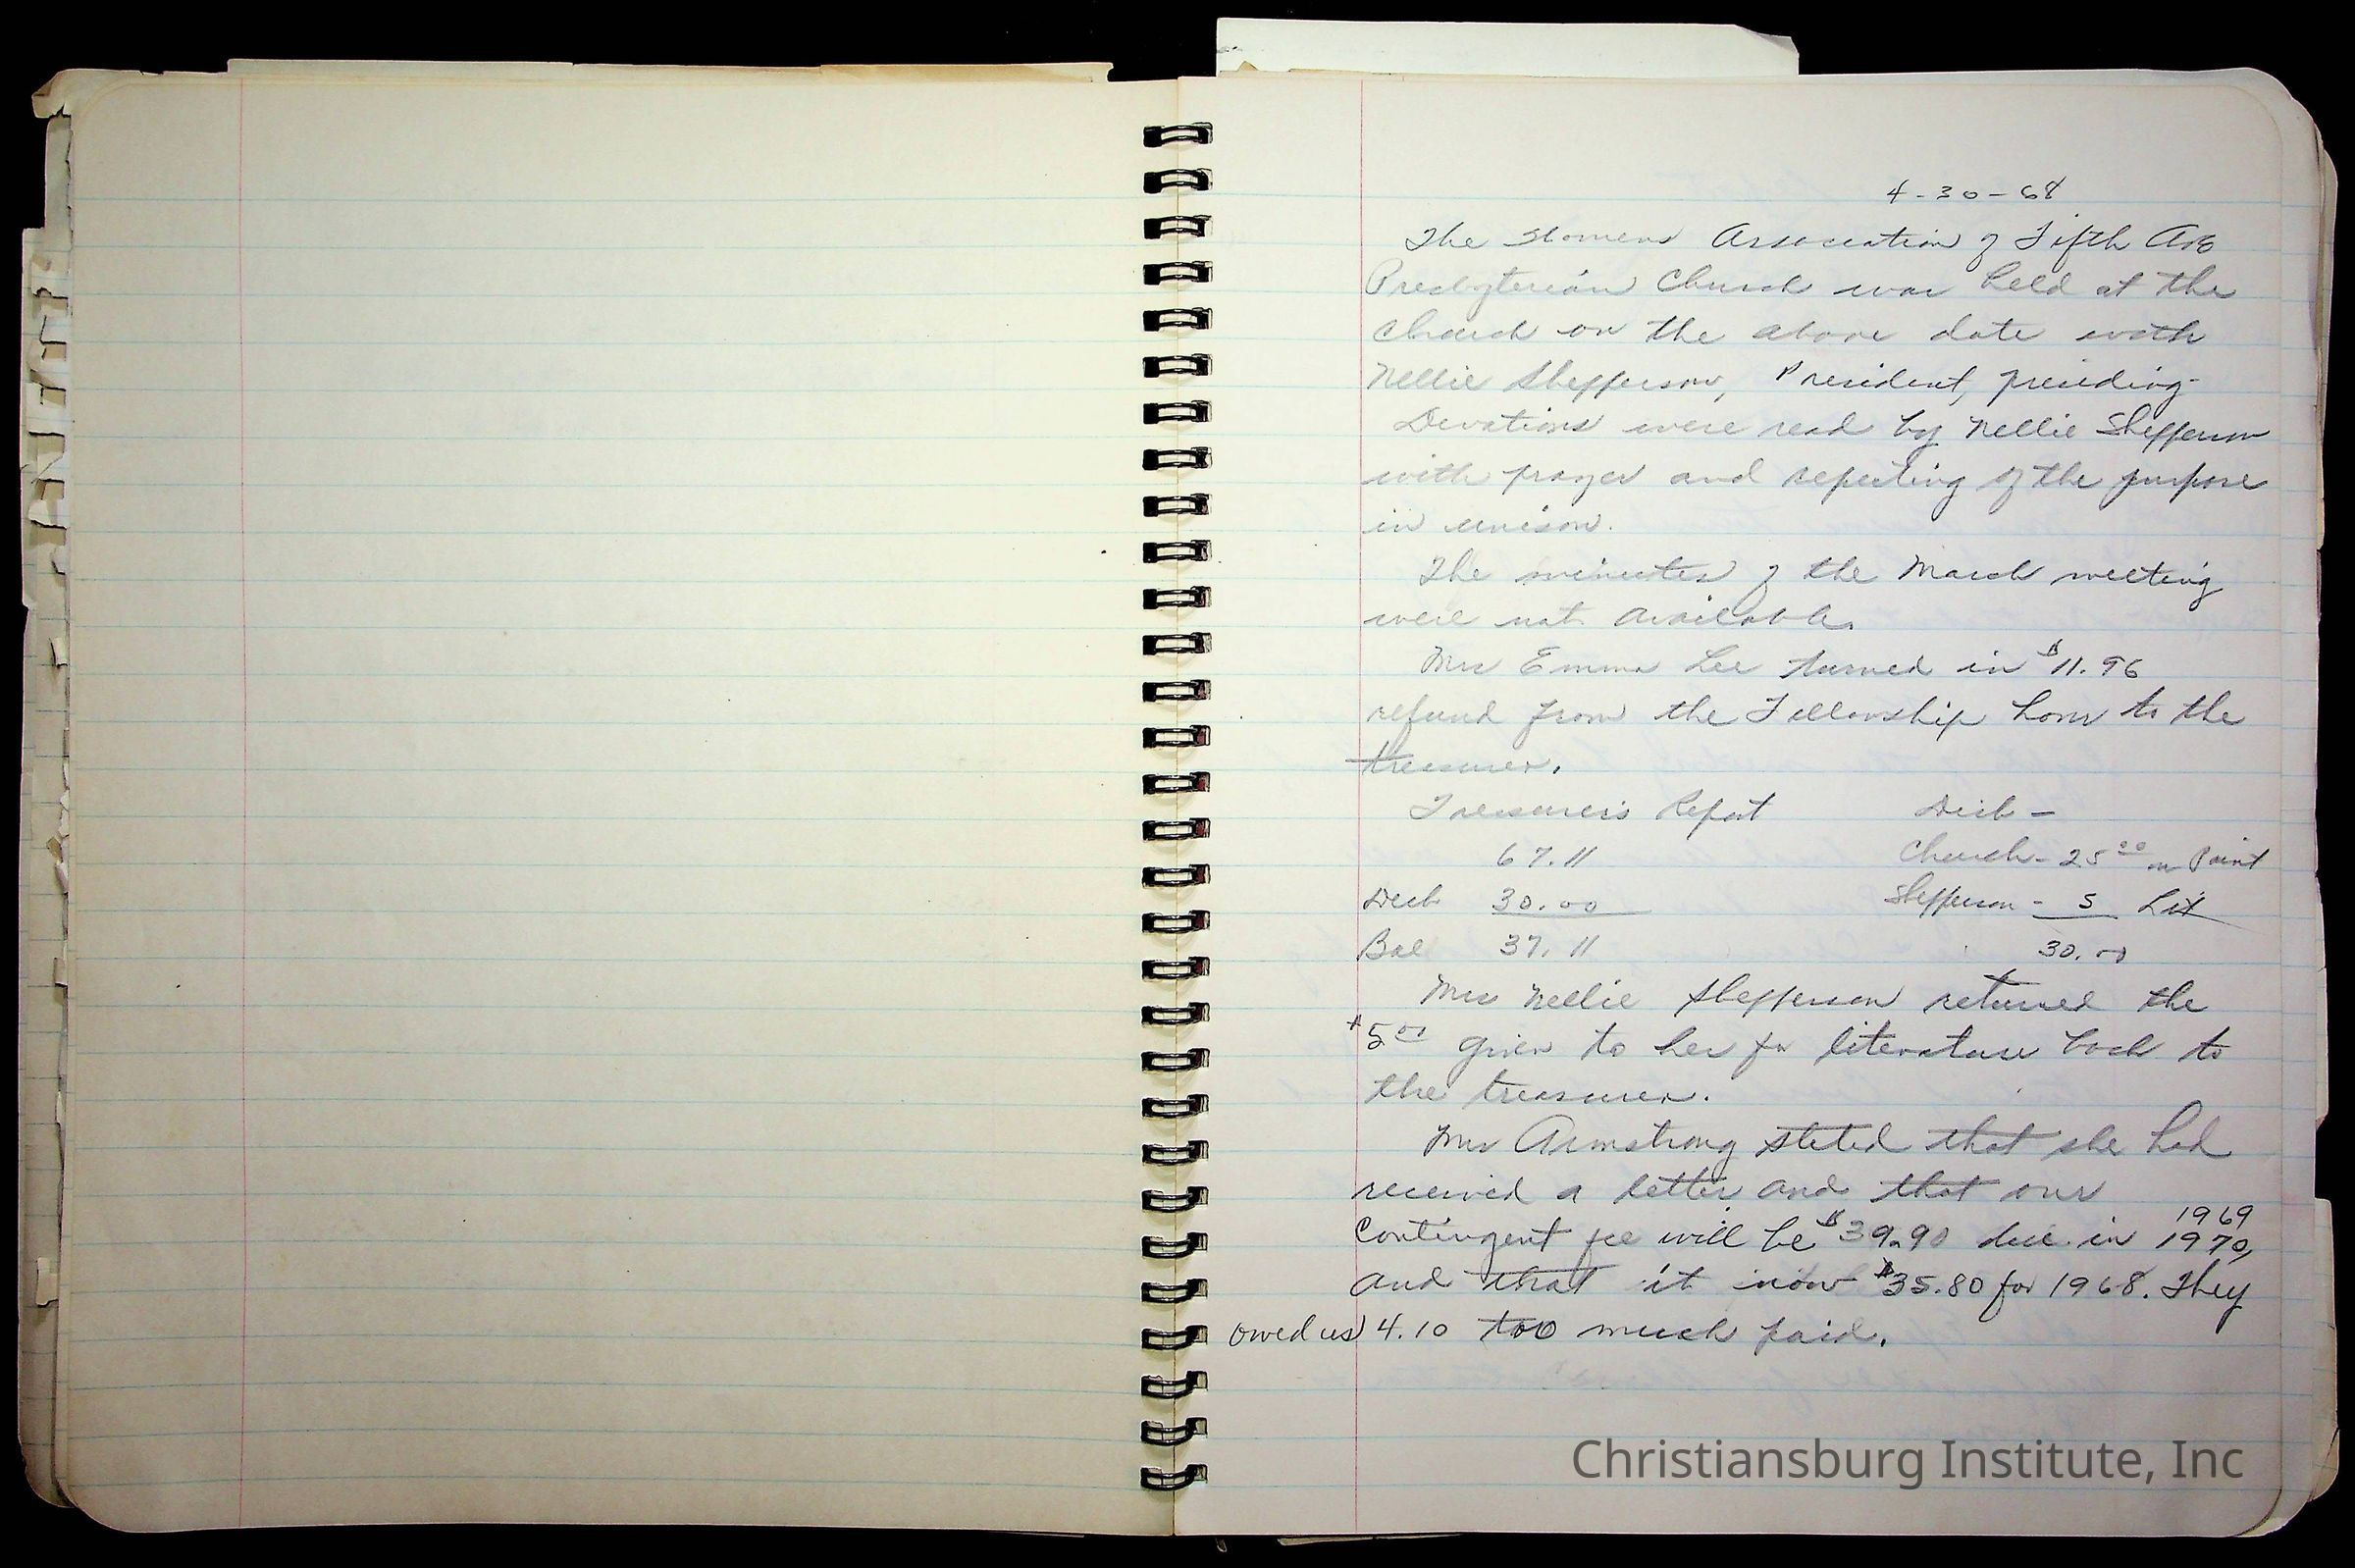 4-30-68
The Womens Association of Fifth Ave
Presbyterian Church was held at the
church on the above date with
Nellie Shepperson, President, presiding.
Devotions were read by Nellie Shepperson
with prayer and repeating of the purpose
in unison.
The minutes of the March meeting
were not available.
Mrs Emma Lee turned in $11.96
refund from the Fellowship hour to the
treasurer.
Treasurer's Report Disb -
67.11 Church - 25 00 on Paint
Disb 30.00 Shepperson - 5 Lit
Bal 37.11 30.00
Mrs Nellie Shepperson returned the
$5 00 given to her for literature back to
the treasurer.
Mrs Armstrong stated that she had
received a letter and that our
1969
Contingent fee will be $39.90 due in 1970,
and that it now $35.80 for 1968. They
owed us 4.10 too much paid.
Christiansburg Institute, Inc